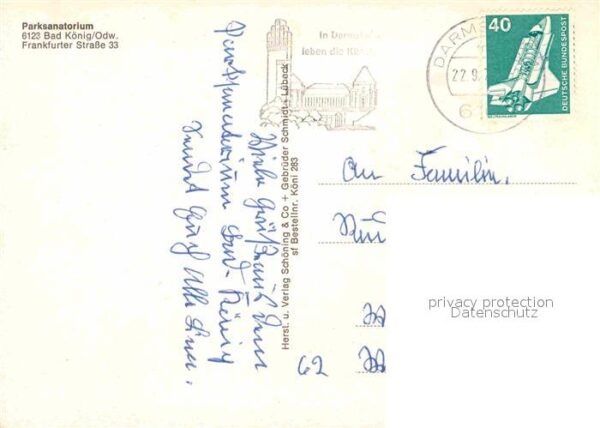 Parksanatorium
6123 Bad König/Odw.
Frankfurter Straße 33
In Darmstadt
leben die Künste
DARMS
22.9.7
6
40
DEUTSCHE BUNDESPOST
Viele Grüße aus dem
Parksanatorium Bad-König
sendet Euch Alle
Herst. u. Verlag Schöning & Co + Gebrüder Schmidt, Lübeck
sf Bestellnr. Köni 283
An Familie
62
privacy protection
Datenschutz